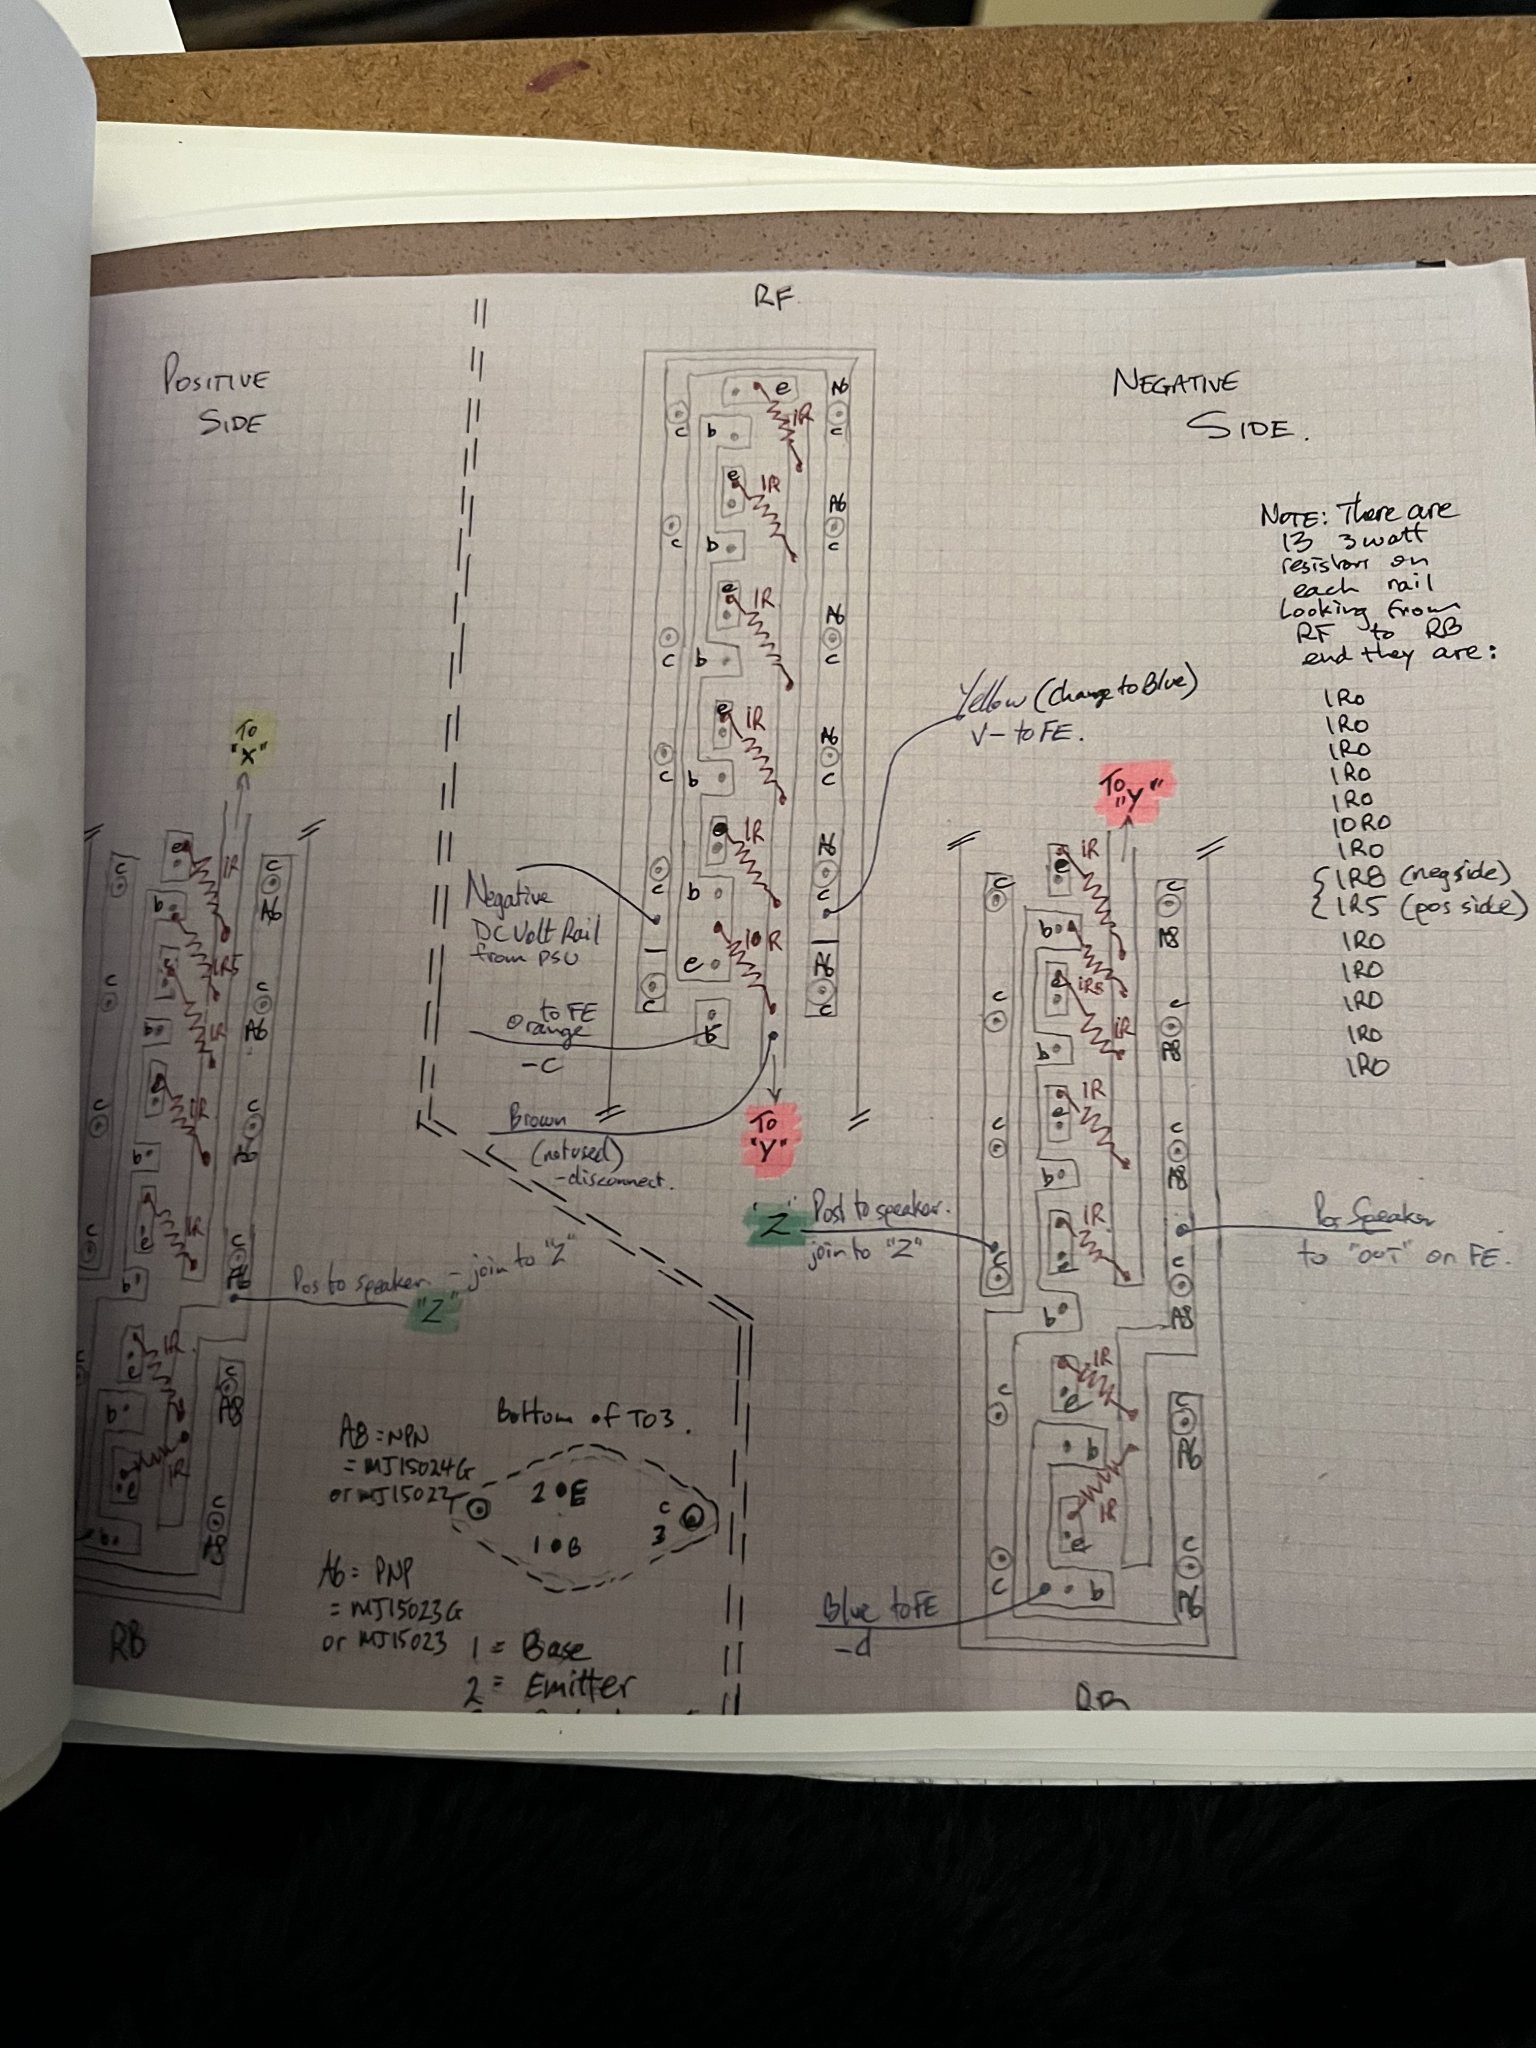 RF
POSITIVE
SIDE
NEGATIVE
SIDE.
NOTE: There are
13 3watt
resistors on
each rail
Looking from
RF to RB
end they are:
1R0
1R0
1R0
1R0
1R0
10R0
1R0
{1R8 (neg side)
{1R5 (pos side)
1R0
1R0
1R0
1R0
1R0
e
A6
1R
c
b
c
e
1R
A6
c
b
c
e
1R
A6
c
b
c
e
1R
A6
c
b
c
1R
A6
c
b
c
10R
A6
e
c
c
b
Yellow (change to Blue)
V- to FE.
Negative
DC Volt Rail
from PSU
to FE
Orange
-C
Brown
(not used)
-disconnect.
To
"Y"
To
"X"
c
e
1R
c
b
A6
c
1R5
c
b
1R
A6
c
1R
c
b
A6
c
e
1R
c
b
A6
Pos to speaker - join to "Z"
"Z"
1R
e
c
A8
b
e
1R
c
A8
b
RB
To
"Y"
c
e
1R
c
b
A8
c
e
1R8
c
b
1R
A8
c
e
1R
c
b
A8
"Z" Post to speaker.
join to "Z"
Pos Speaker
to "OUT" on FE.
1R
e
c
b
A8
c
1R
e
c
b
A6
1R
e
c
c
b
A6
Blue to FE
-d
RB
Bottom of TO3.
A8 = NPN
= MJ15024G
or MJ15022
2 E
c
3
1 B
A6 = PNP
= MJ15023G
or MJ15023
1 = Base
2 = Emitter